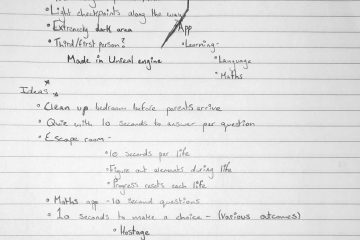 • Light checkpoints along the way
• Extremely dark area
App
• Third/first person?
• Learning-
Made in Unreal engine
• Language
• Maths
Ideas
• Clean up bedroom before parents arrive
• Quiz with 10 seconds to answer per question
• Escape room -
• 10 seconds per life
• Figure out elements during life
• Progress resets each life
• Maths app - 10 second questions
• 10 seconds to make a choice - (Various outcomes)
• Hostage